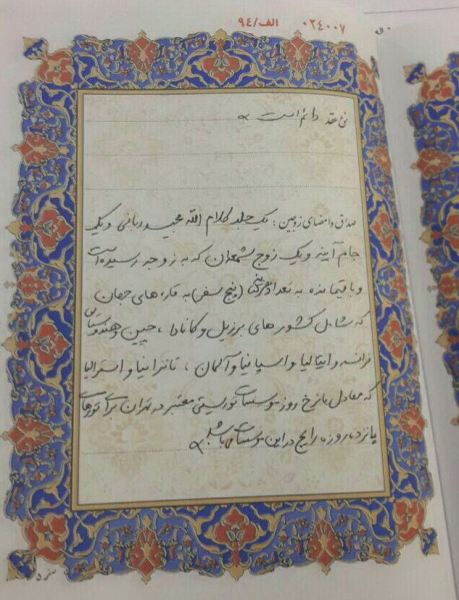 ۰۲۴۰۰۷ الف/۹۴
نوع عقد دائم است
صداق و امضای زوجین: یک جلد کلام الله مجید ربانی و یک
جام آینه و یک زوج شمعدان که به زوجه رسیده است
و باقیمانده به تعداد (پنج سفر) به قاره های جهان
که شامل کشور های برزیل و کانادا، چین و هندوستان
فرانسه و ایتالیا و اسپانیا و آلمان، تانزانیا و استرالیا
که معادل با نرخ روز موسسات توریستی معتبر در تهران برای تورهای
پانزده روزه رایج در این موسسات می باشد.
صفحه ۵